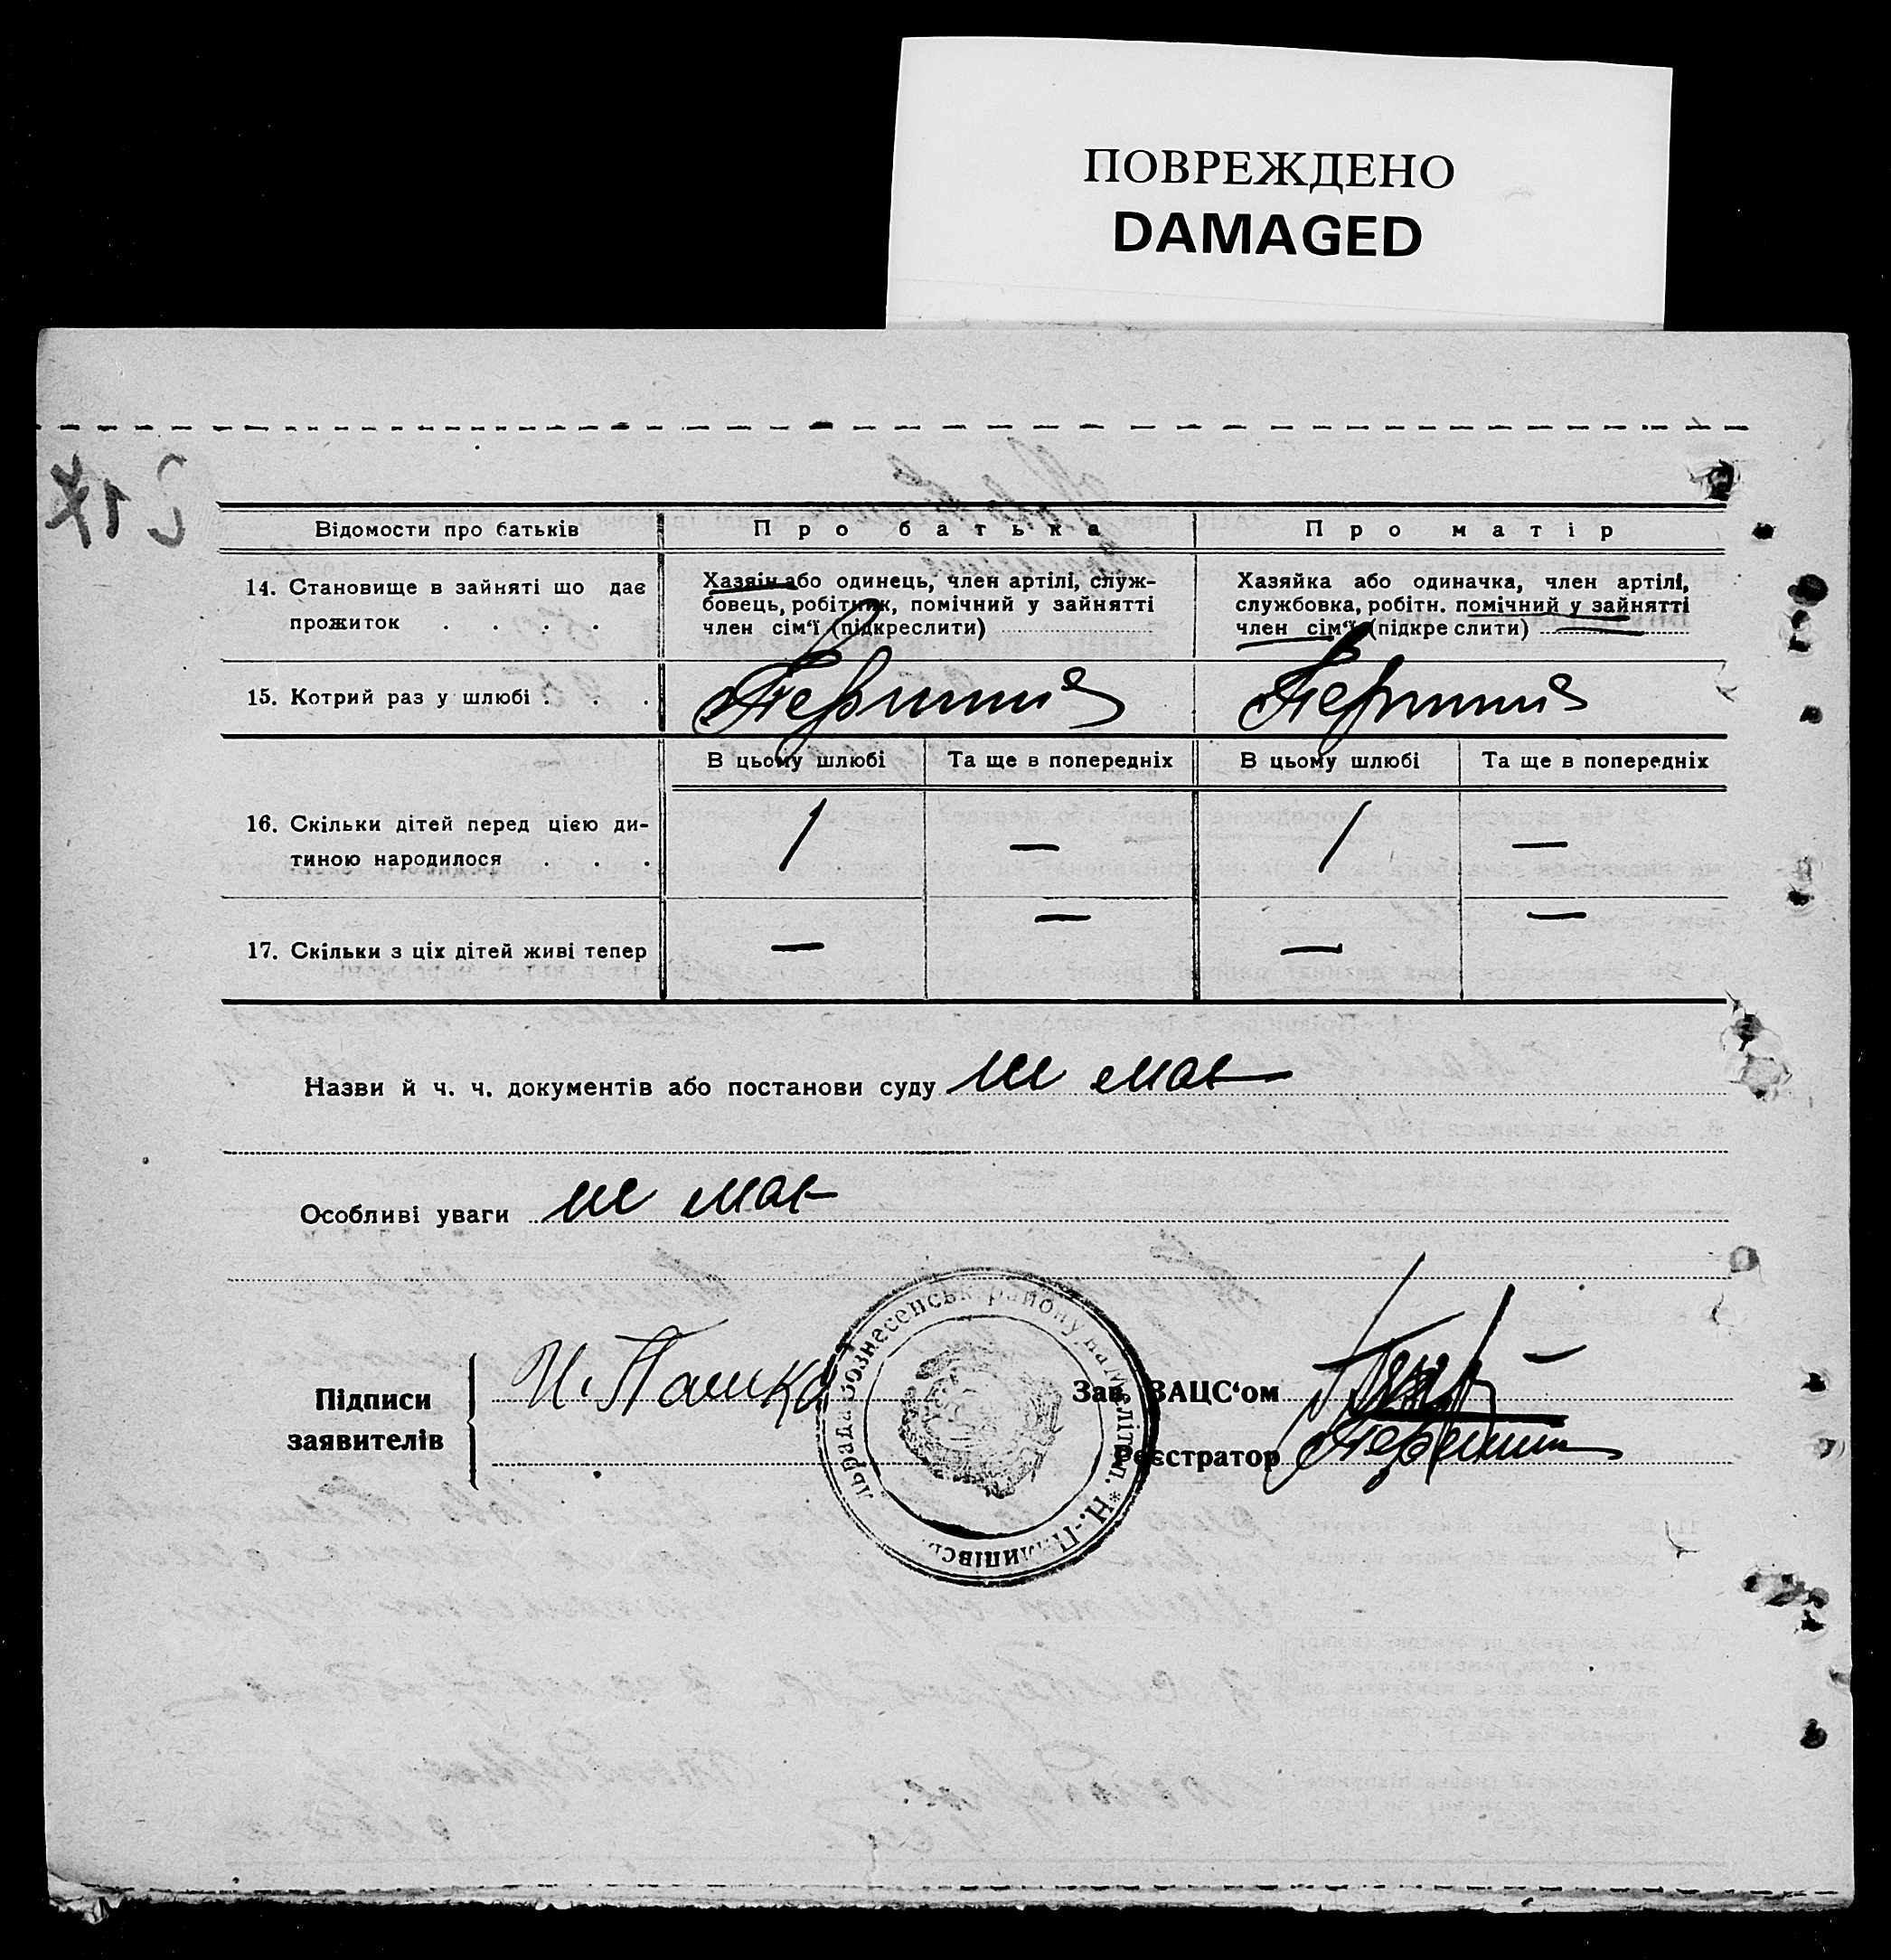 ПОВРЕЖДЕНО
DAMAGED
Відомости про батьків
Про батька
Про матір
14. Становище в зайняті що дає
прожиток . . . .
Хазяїн або одинець, член артілі, служ-
бовець, робітник, помічний у зайнятті
член сім'ї (підкреслити)
Хазяйка або одиначка, член артілі,
службовка, робітн. помічний у зайнятті
член сім'ї (підкре слити)
15. Котрий раз у шлюбі . . .
Перший
Перший
В цьому шлюбі
Та ще в попередніх
В цьому шлюбі
Та ще в попередніх
16. Скільки дітей перед цією ди-
тиною народилося . . .
1 — 1 —
17. Скільки з ціх дітей живі тепер
— — — —
Назви й ч. ч. документів або постанови суду не має
Особливі уваги не має
Підписи
заявителів
И. Пашка
Зав. ЗАЦС'ом
Реєстратор
льрада Вознесенськ району на Мелітоп. * Н.-Пилипівсь